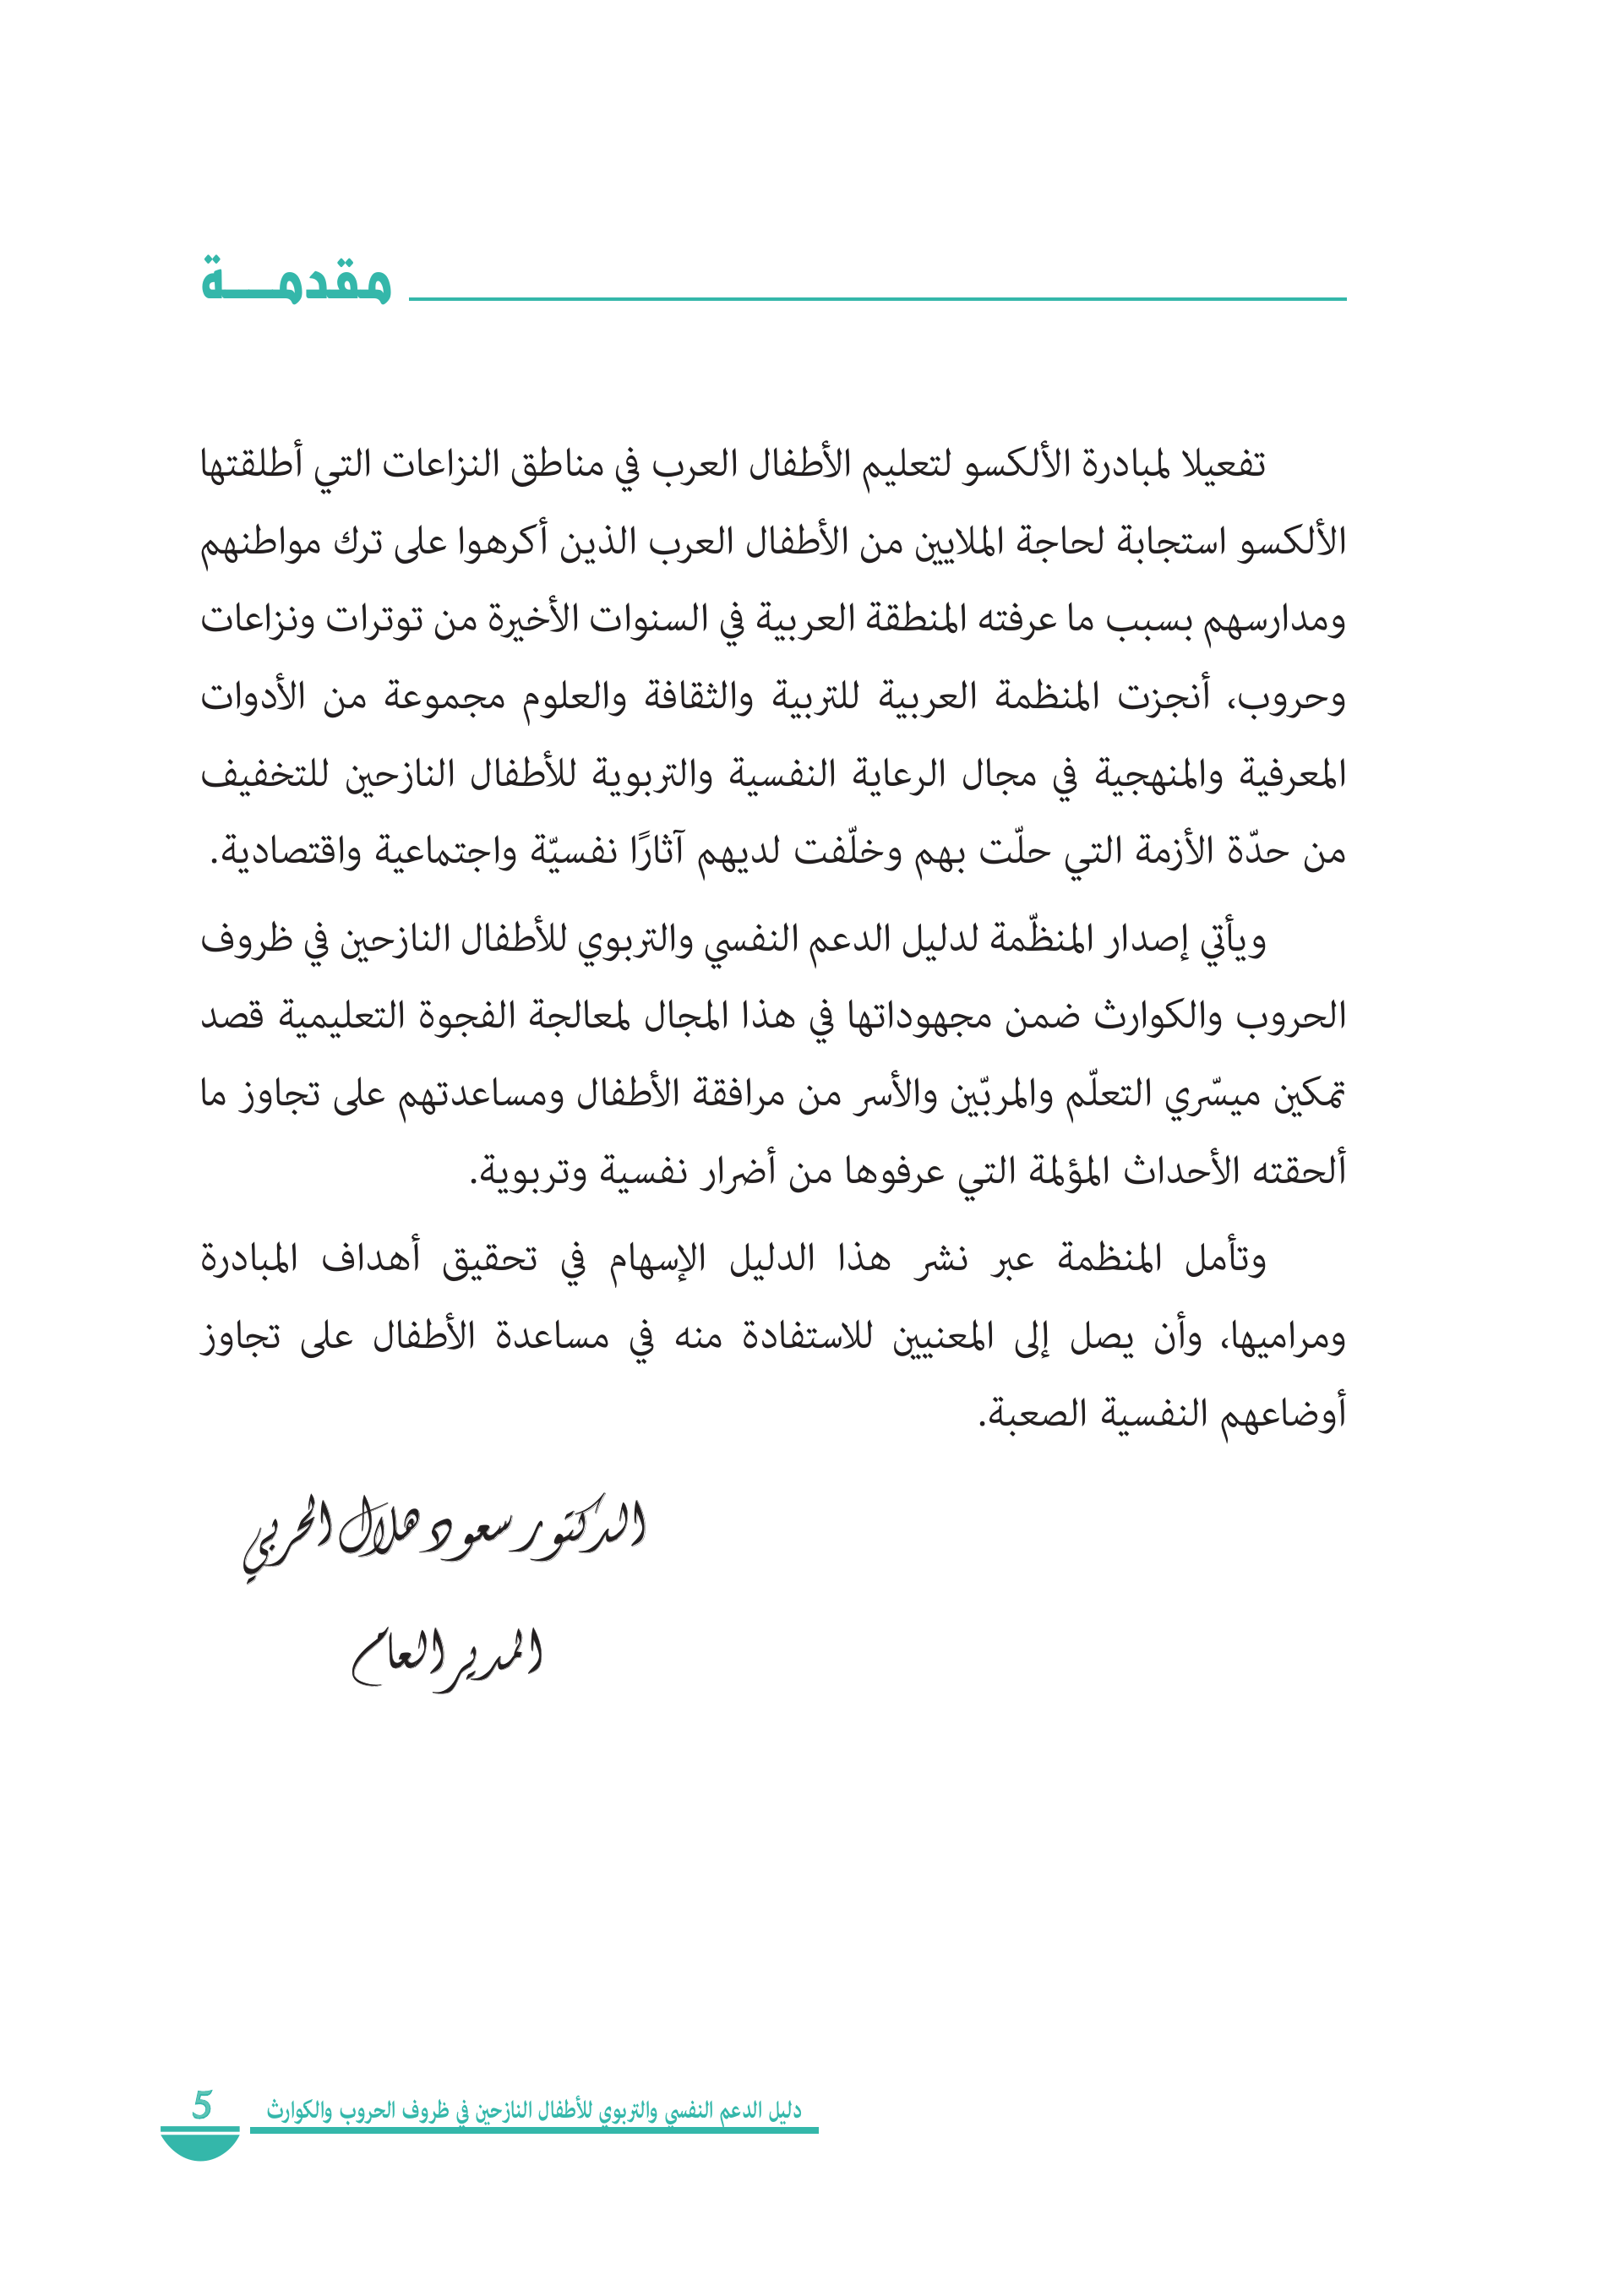 مقدمـــة
تفعيلا لمبادرة الألكسو لتعليم الأطفال العرب في مناطق النزاعات التي أطلقتها
الألكسو استجابة لحاجة الملايين من الأطفال العرب الذين أكرهوا على ترك مواطنهم
ومدارسهم بسبب ما عرفته المنطقة العربية في السنوات الأخيرة من توترات ونزاعات
وحروب، أنجزت المنظمة العربية للتربية والثقافة والعلوم مجموعة من الأدوات
المعرفية والمنهجية في مجال الرعاية النفسية والتربوية للأطفال النازحين للتخفيف
من حدّة الأزمة التي حلّت بهم وخلّفت لديهم آثارًا نفسيّة واجتماعية واقتصادية.
ويأتي إصدار المنظّمة لدليل الدعم النفسي والتربوي للأطفال النازحين في ظروف
الحروب والكوارث ضمن مجهوداتها في هذا المجال لمعالجة الفجوة التعليمية قصد
تمكين ميسّري التعلّم والمربّين والأسر من مرافقة الأطفال ومساعدتهم على تجاوز ما
ألحقته الأحداث المؤلمة التي عرفوها من أضرار نفسية وتربوية.
وتأمل المنظمة عبر نشر هذا الدليل الإسهام في تحقيق أهداف المبادرة
ومراميها، وأن يصل إلى المعنيين للاستفادة منه في مساعدة الأطفال على تجاوز
أوضاعهم النفسية الصعبة.
الدكتور سعود هلال الحربي
المدير العام
دليل الدعم النفسي والتربوي للأطفال النازحين في ظروف الحروب والكوارث
5